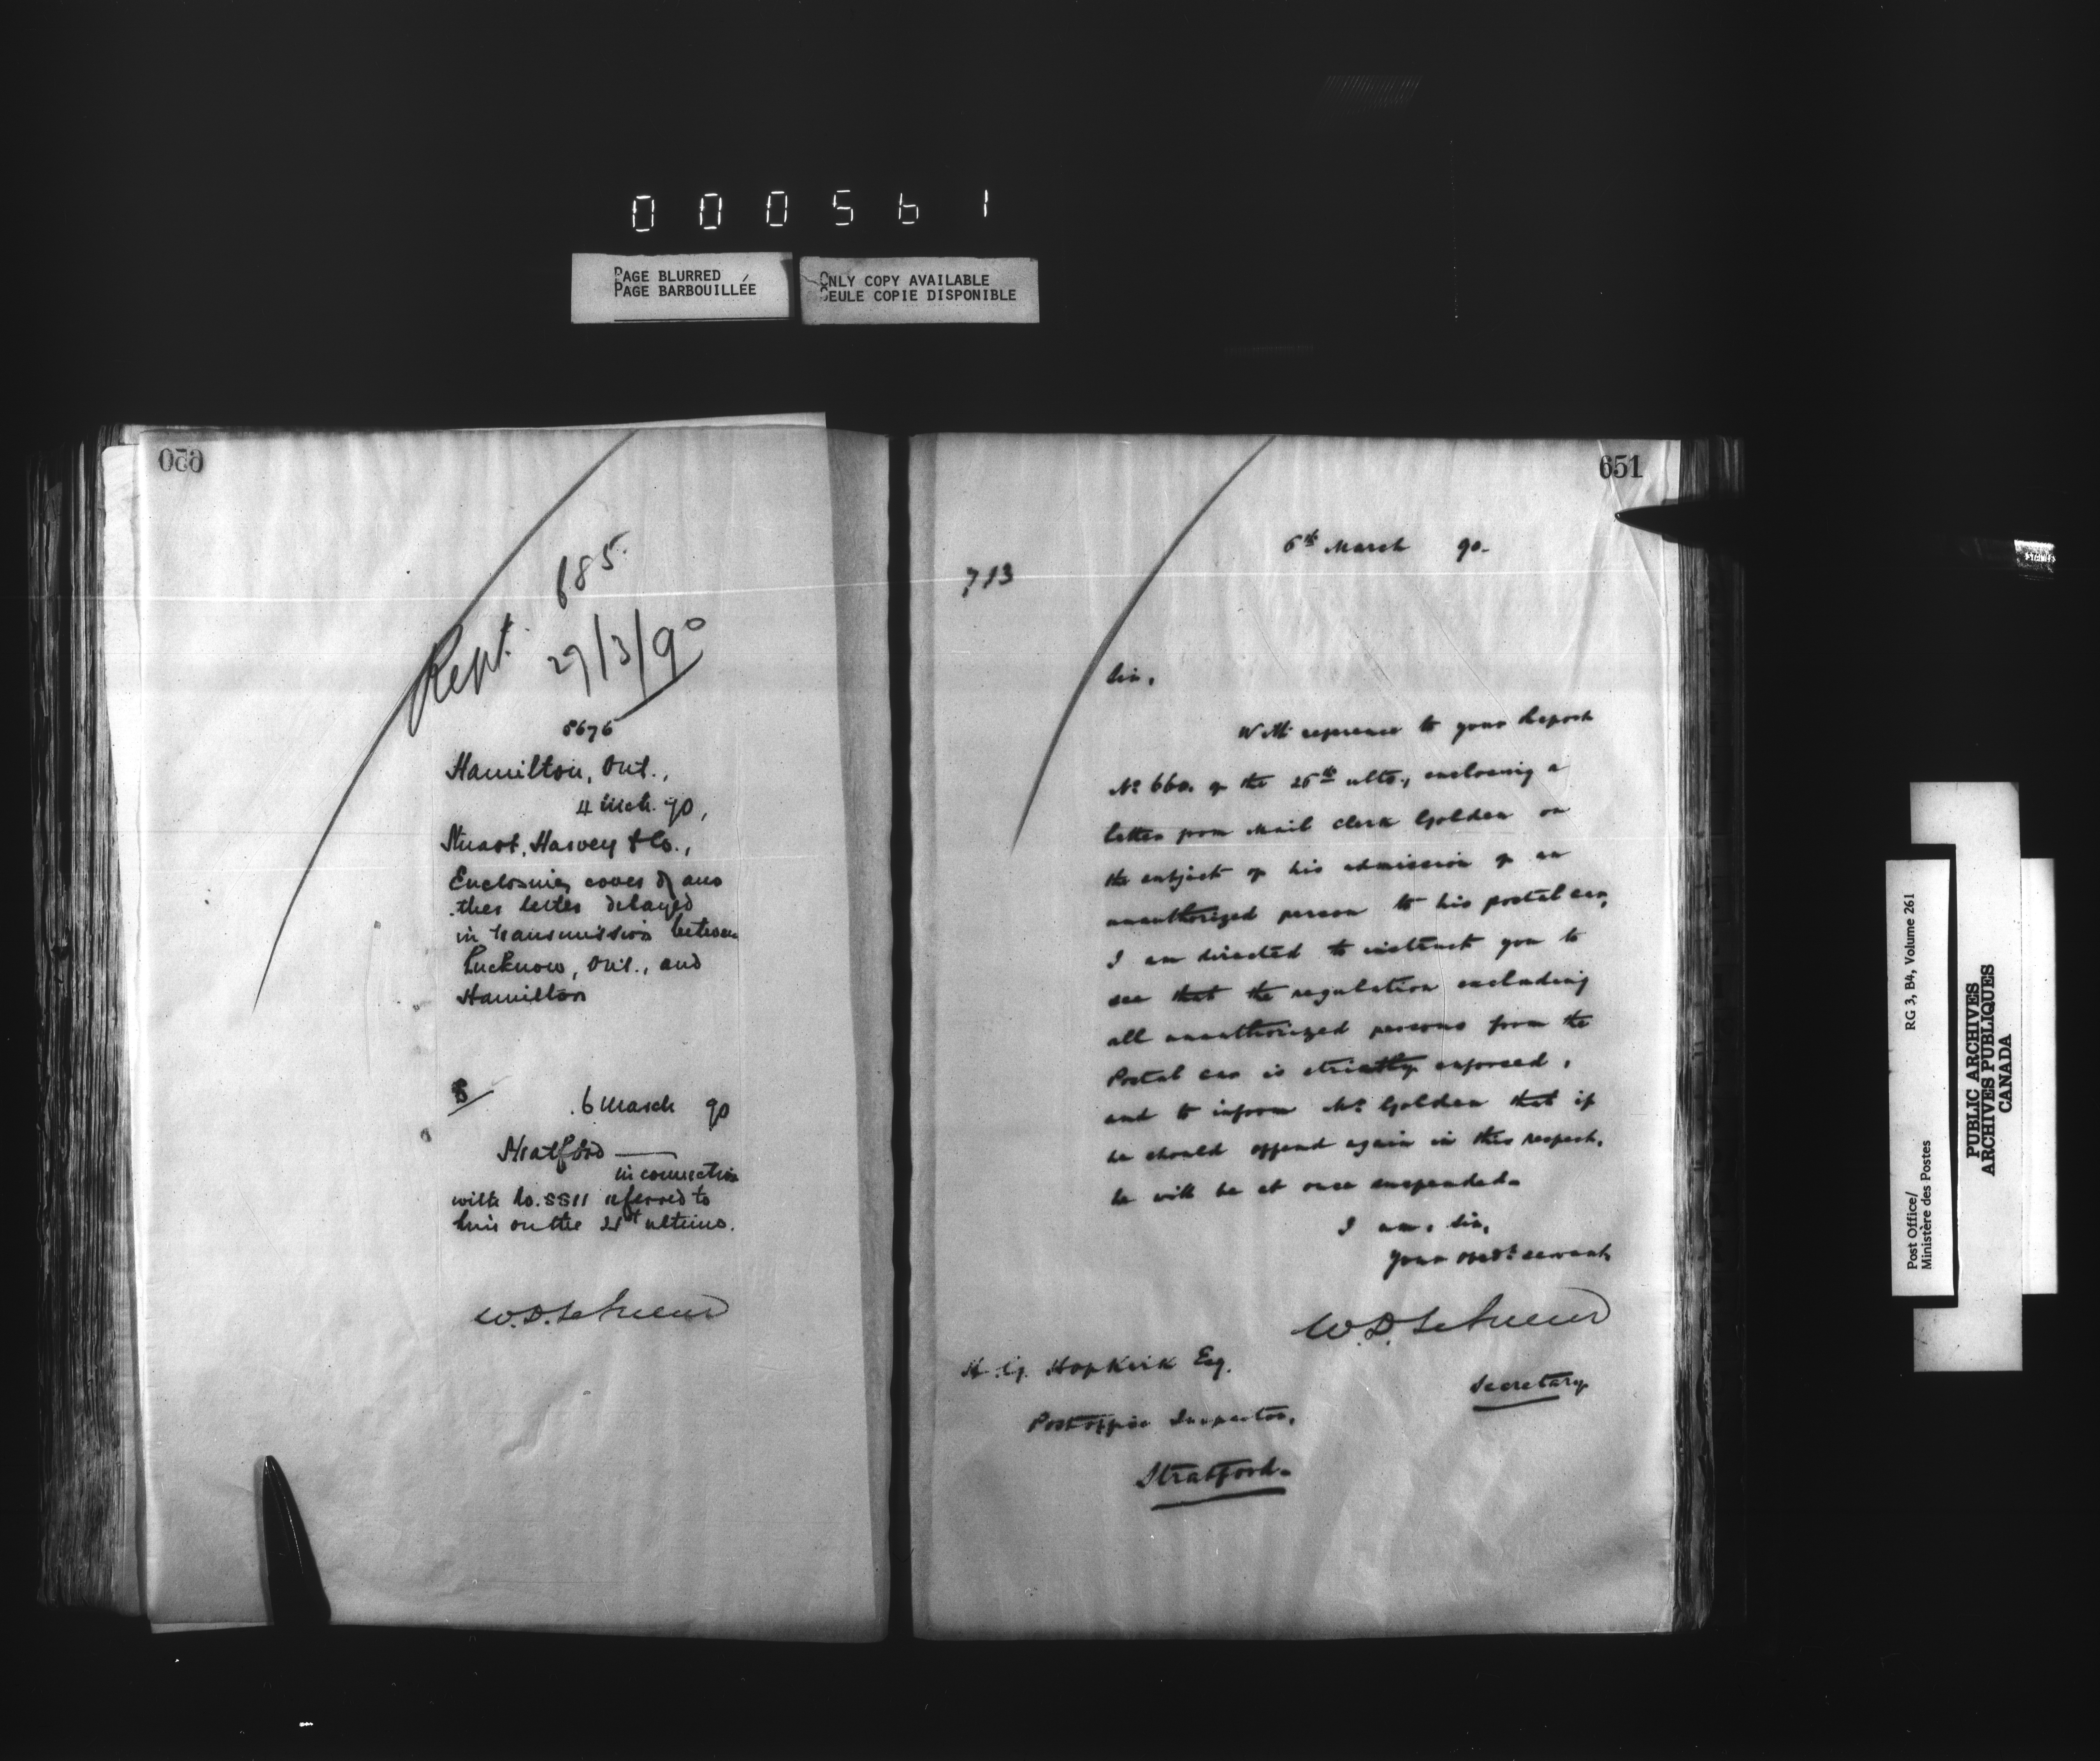 000561
PAGE BLURRED
PAGE BARBOUILLÉE
ONLY COPY AVAILABLE
SEULE COPIE DISPONIBLE
650
685.
Rept. 27/3/90
8676
Hamilton, Ont.,
4 Mch. 90,
Stuart, Harvey & Co.,
Enclosing cover of ano
ther letter delayed
in transmission between
Lucknow, Ont., and
Hamilton
6 March 90
Stratford —
in connection
with No. 8811 referred to
him on the 21st ultimo.
W.D. LeSueur
651
6th March 90.
713
Sir,
With reference to your Report
No 660. of the 26th ulto., enclosing a
letter from Mail Clerk Golden on
the subject of his admission of an
unauthorized person to his postal car,
I am directed to instruct you to
see that the regulation excluding
all unauthorized persons from the
Postal car is strictly enforced,
and to inform Mr Golden that if
he should offend again in this respect,
he will be at once suspended.
I am, Sir,
Your obedt servant,
W.D. LeSueur
Secretary
H. G. Hopkirk Esq.
Post office Inspector,
Stratford.
Post Office/
Ministère des Postes
RG 3, B4, Volume 261
PUBLIC ARCHIVES
ARCHIVES PUBLIQUES
CANADA